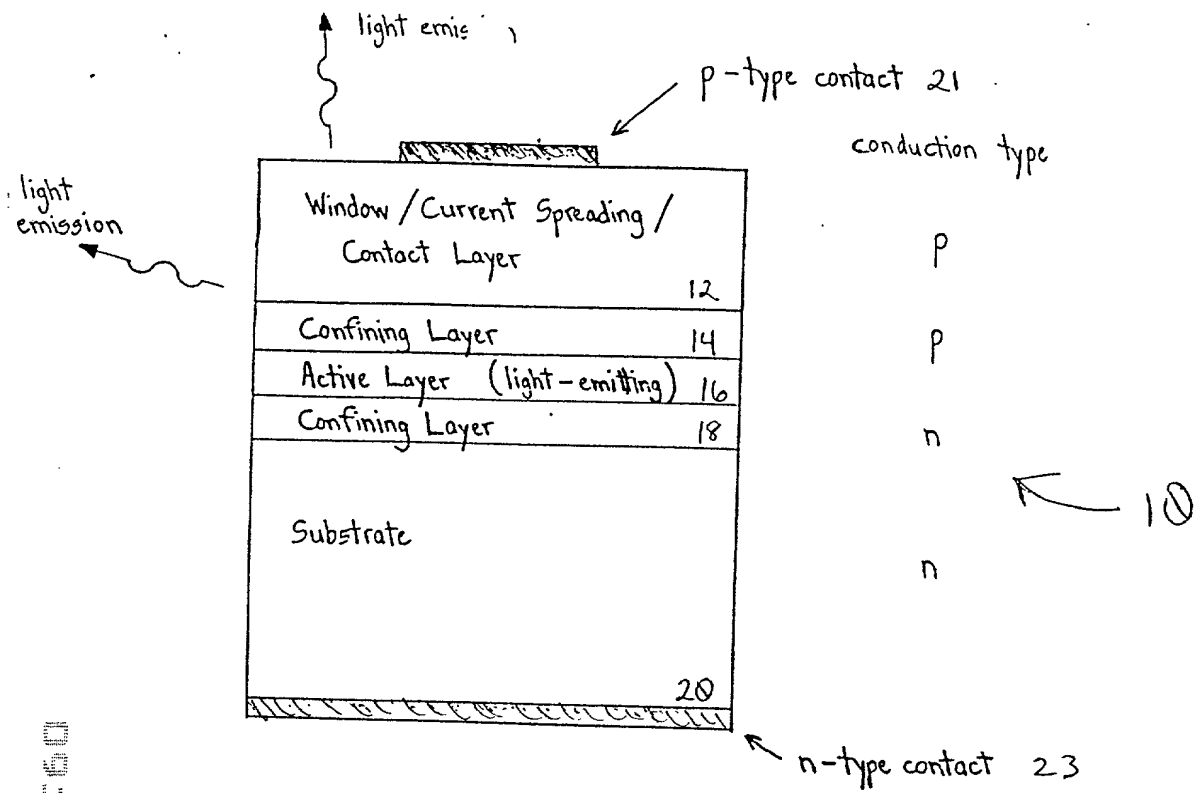 light emis
p-type contact 21
conduction type
light
emission
Window / Current Spreading /
Contact Layer
12
p
Confining Layer 14
p
Active Layer (light-emitting) 16
Confining Layer 18
n
10
Substrate
n
20
n-type contact 23